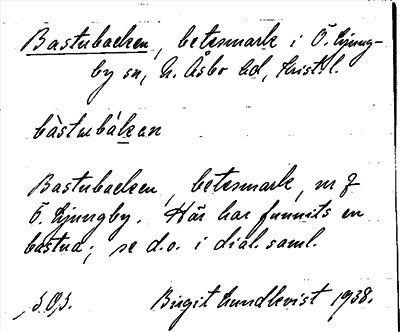 Bastubacken, betesmark i Ö. Ljung-
by sn, N. Åsbo hd, Krist. l.
bàstubákan
Bastubacken, betesmark, nr 8
Ö. Ljungby. Här har funnits en
bastua; se d.o. i dial. saml.
Birgit Lundkvist 1938.